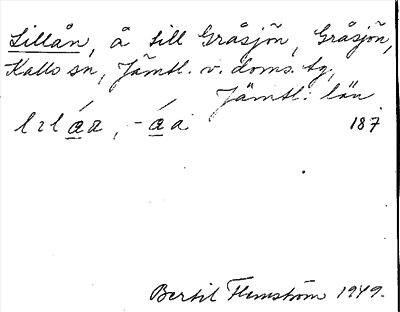 Lillån, å till Gråsjön, Gråsjön,
Kalls sn, Jämtl. v. doms. tg,
Jämtl: län
187
Bertil Flemström 1949.